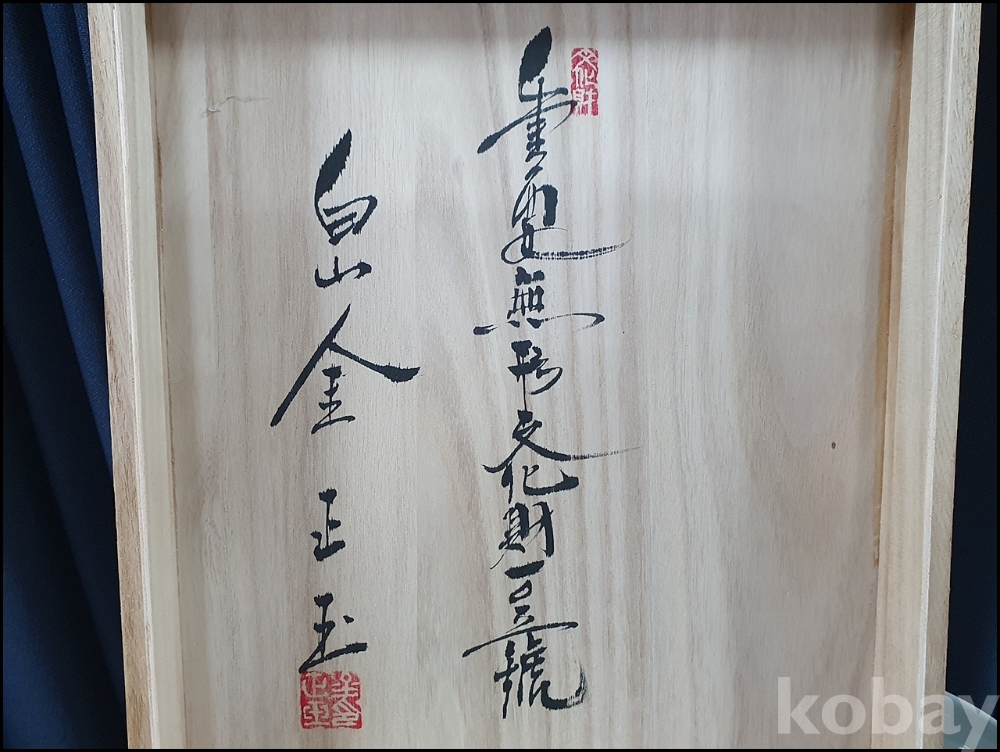 文化財
重要無形文化財一〇五號
白山金正玉
kobay